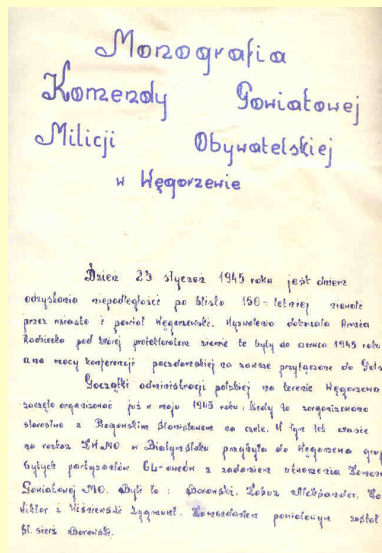 Monografia
Komendy Powiatowej
Milicji Obywatelskiej
w Węgorzewie
Dzień 23 stycznia 1945 roku jest dniem
odzyskania niepodległości po blisko 150-letniej niewoli
przez miasto i powiat Węgorzewski. Wyzwolenia dokonała Armia
Radziecka pod której protektoratem ziemie te były do czerwca 1945 roku
a na mocy konferencji poczdamskiej na zawsze przyłączone do Pols
Początki administracji polskiej na terenie Węgorzewa
zaczęto organizować już w maju 1945 roku, kiedy to zorganizowano
starostwo z Stanisławem na czele. W tym też czasie
na rozkaz KWMO w Białymstoku przybyła do Węgorzewa grup
byłych partyzantów z zadaniem utworzenia Komend
Powiatowej MO. Byli to: Borowski, Aleksander,
Wiktor i Wiszniewski Zygmunt. Komendantem powiatowym został
st. sierż. Borowski.